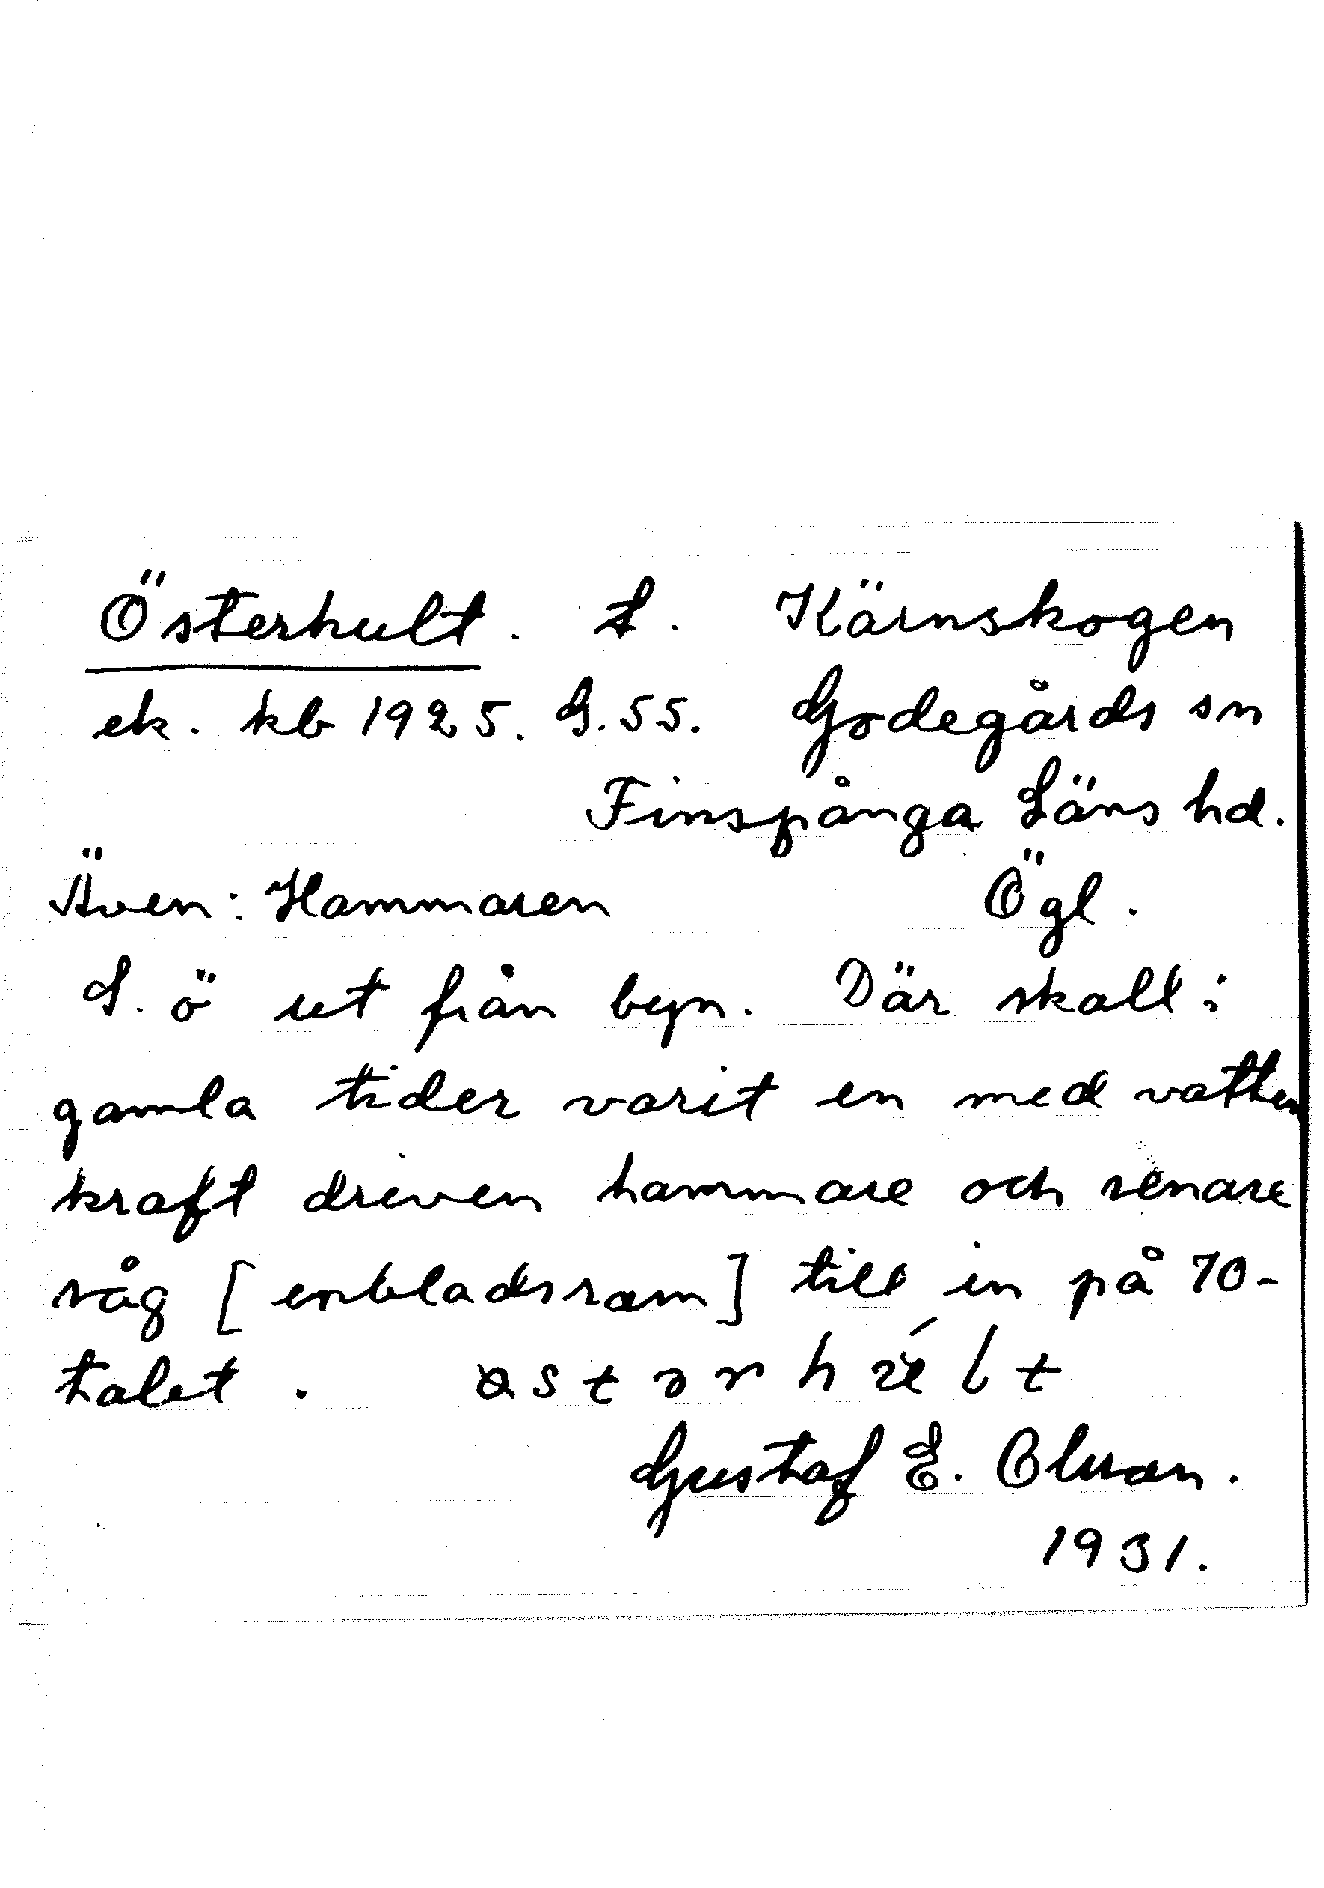 Österhult. t. Kärnskogen
ek. kb 1925. G.55. Godegårds sn
Finspånga Läns hd.
Även: Hammaren Ögl.
S. ö ut från byn. Där skall i
gamla tider varit en med vatten
kraft dreven hammare och senare
såg [enbladsram] till in på 70-
talet.
Gustaf E. Olsson.
1931.